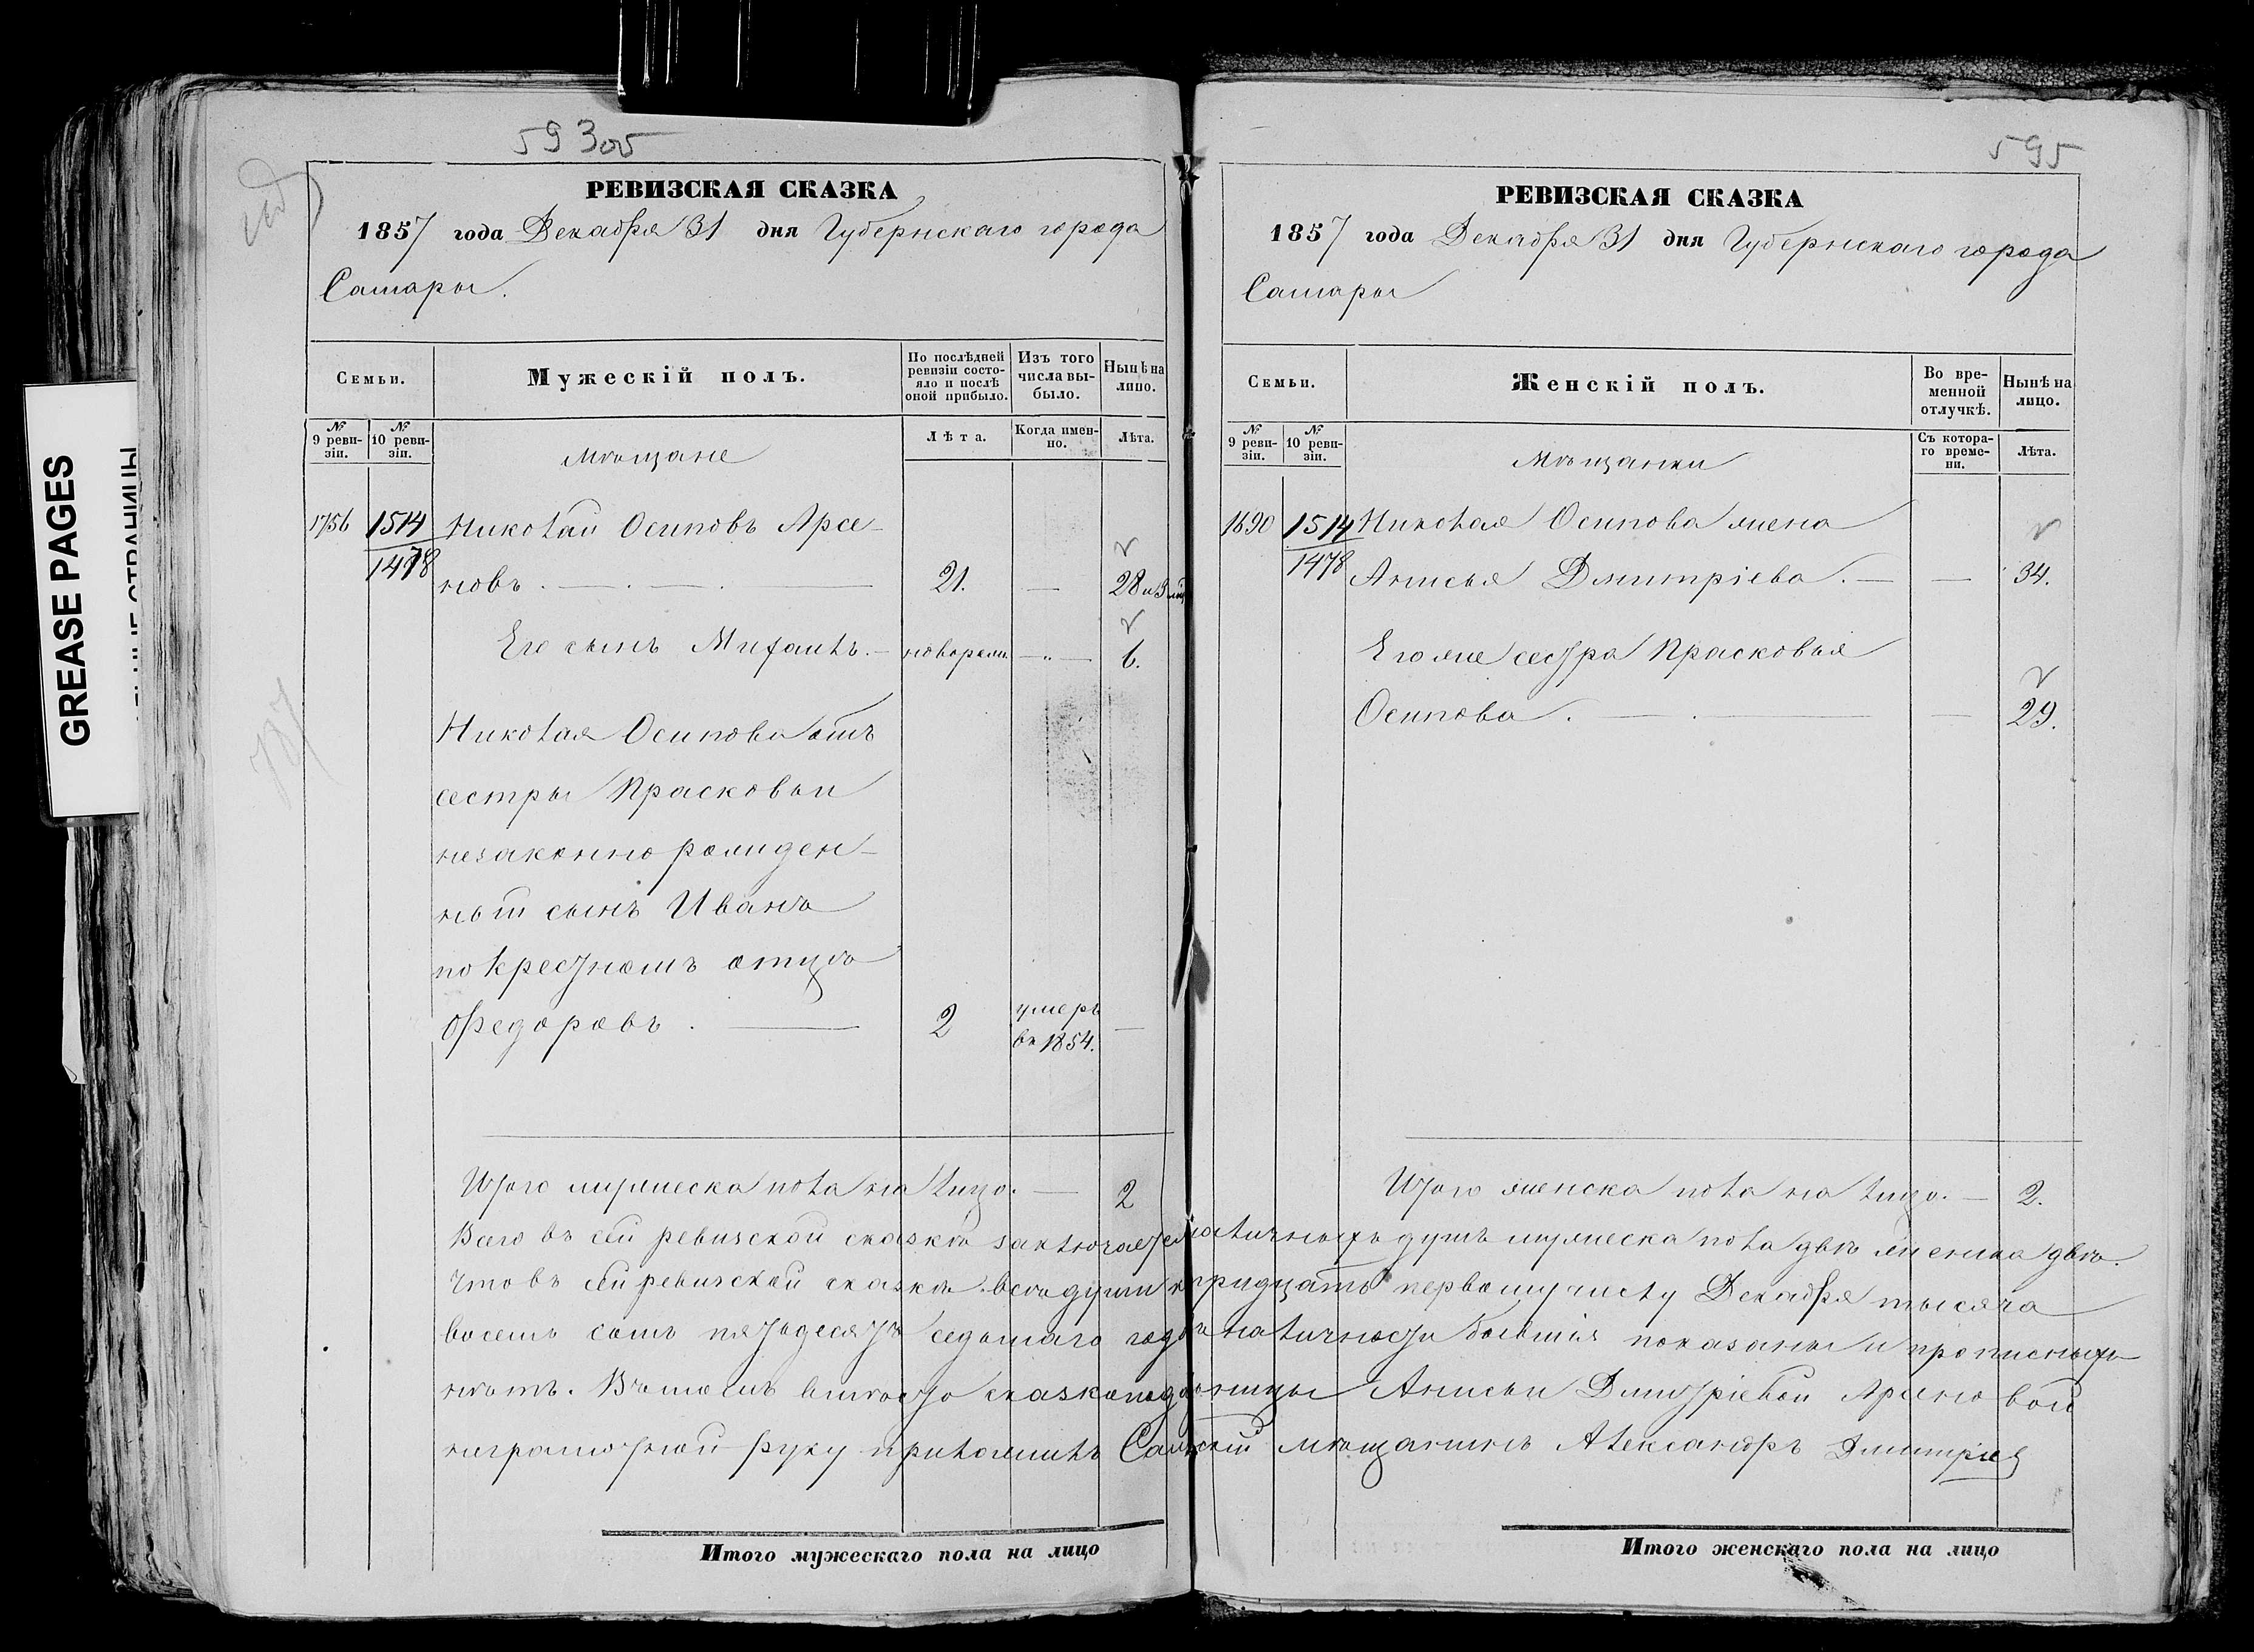 59305
РЕВИЗСКАЯ СКАЗКА
1857 года Декабря 31 дня Губернскаго города
Самары.
Семьи.
Мужескій полъ.
По послѣдней ревизіи состояло и послѣ оной прибыло.
Изъ того числа выбыло.
Нынѣ на лицо.
№ 9 ревизіи.
№ 10 ревизіи.
Мѣщане
Лѣта.
Когда именно.
Лѣта.
1756 1514 Николай Осиповъ Арсе-
1478 новъ. — . — . 21. — 28 и 3
Его сынъ Михаилъ. — новорожд — „ — 6.
Николая Осипова отъ
сестры Прасковьи
незаконнорожден-
ный сынъ Иванъ
по Крестномъ отцѣ
Федоровъ . — 2 умеръ въ 1854. —
Итого мужеска пола на лицо. — 2
GREASE PAGES
595
РЕВИЗСКАЯ СКАЗКА
1857 года Декабря 31 дня Губернскаго города
Самары
Семьи.
Женскій полъ.
Во временной отлучкѣ.
Нынѣ на лицо.
№ 9 ревизіи.
№ 10 ревизіи.
Мѣщанки
Съ котораго времени.
Лѣта.
1690 1514 Николая Осипова жена
1478 Анисья Дмитріева. — — 34.
Его же сестра Прасковья
Осипова. — . — — 29.
Итого женска пола на лицо. — 2.
Всего въ сей ревизской сказкѣ заключается наличныхъ душъ мужеска пола двѣ женска двѣ.
Что въ сей ревизской сказкѣ всѣ души къ тридцать первому числу Декабря тысяча
восемь сотъ пятьдесятъ седьмаго года въ наличности бывшія показаны и прописныхъ
нѣтъ. Въ томъ вмѣсто сказкоподательницы Анисьи Дмитріевой Арсеновой
неграмотной руку приложилъ Самарскій мѣщанинъ Александръ Дмитріев
Итого мужескаго пола на лицо
Итого женскаго пола на лицо